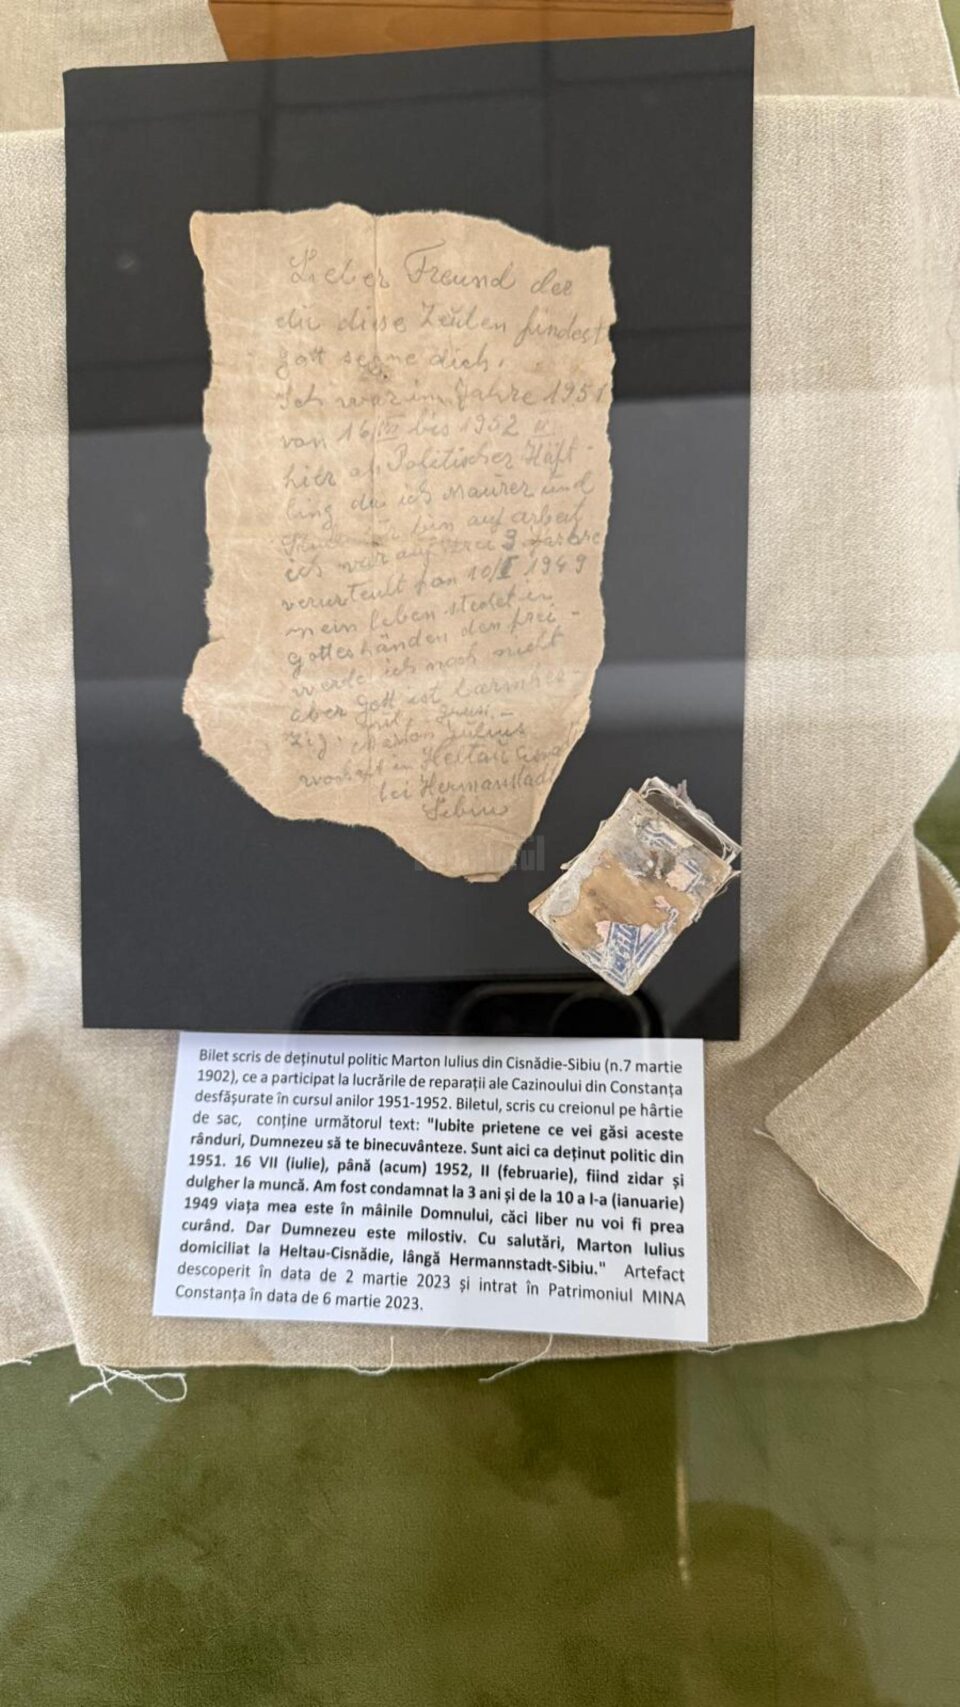 Lieber Freund der
du diese Zeulen findest
gott segne dich.
Ich war im Jahre 1951
von 16/VII bis 1952 II
hier als Politischer Häft-
ling da ich Maurer und
bin auf arbeit
ich war auf 3 Jahre
verurteult fon 10/I 1949
mein leben stehet in
gottes händen den frei-
werde ich noch nicht
aber gott ist barmhes-
Marton Julius
wohnhaft in Heltau
bei Hermanstadt
Sebiu
Bilet scris de deținutul politic Marton Iulius din Cisnădie-Sibiu (n.7 martie
1902), ce a participat la lucrările de reparații ale Cazinoului din Constanța
desfășurate în cursul anilor 1951-1952. Biletul, scris cu creionul pe hârtie
de sac, conține următorul text: "Iubite prietene ce vei găsi aceste
rânduri, Dumnezeu să te binecuvânteze. Sunt aici ca deținut politic din
1951. 16 VII (iulie), până (acum) 1952, II (februarie), fiind zidar și
dulgher la muncă. Am fost condamnat la 3 ani și de la 10 a I-a (ianuarie)
1949 viața mea este în mâinile Domnului, căci liber nu voi fi prea
curând. Dar Dumnezeu este milostiv. Cu salutări, Marton Iulius
domiciliat la Heltau-Cisnădie, lângă Hermannstadt-Sibiu." Artefact
descoperit în data de 2 martie 2023 și intrat în Patrimoniul MINA
Constanța în data de 6 martie 2023.